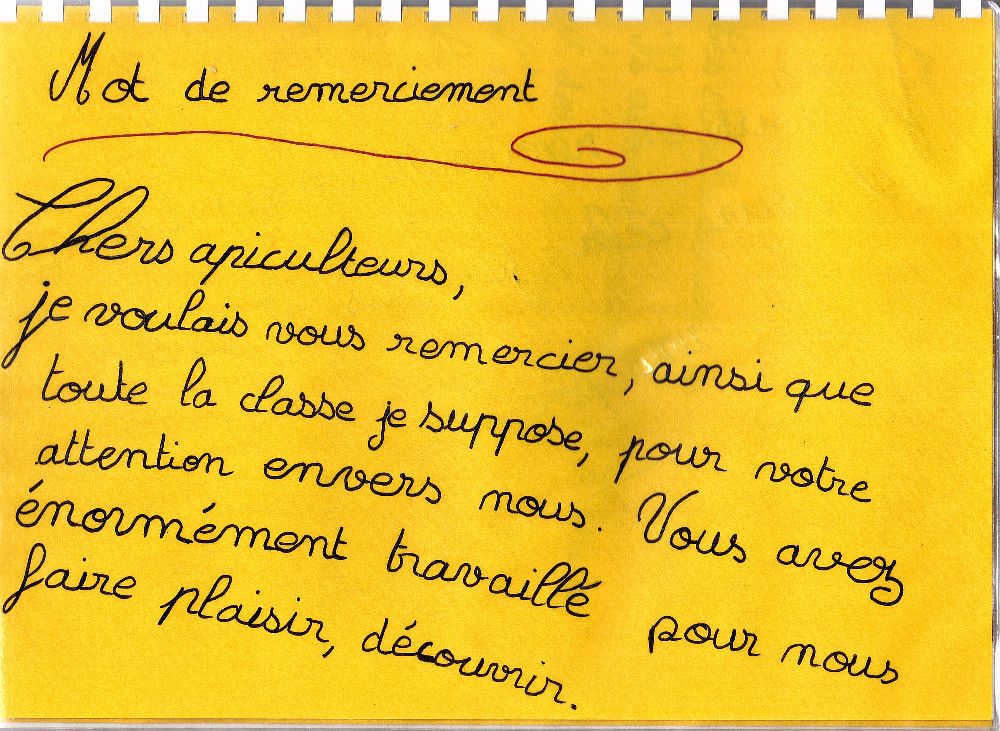 Mot de remerciement
Chers apiculteurs,
je voulais vous remercier, ainsi que
toute la classe je suppose, pour votre
attention envers nous. Vous avez
énormément travaillé pour nous
faire plaisir, découvrir.